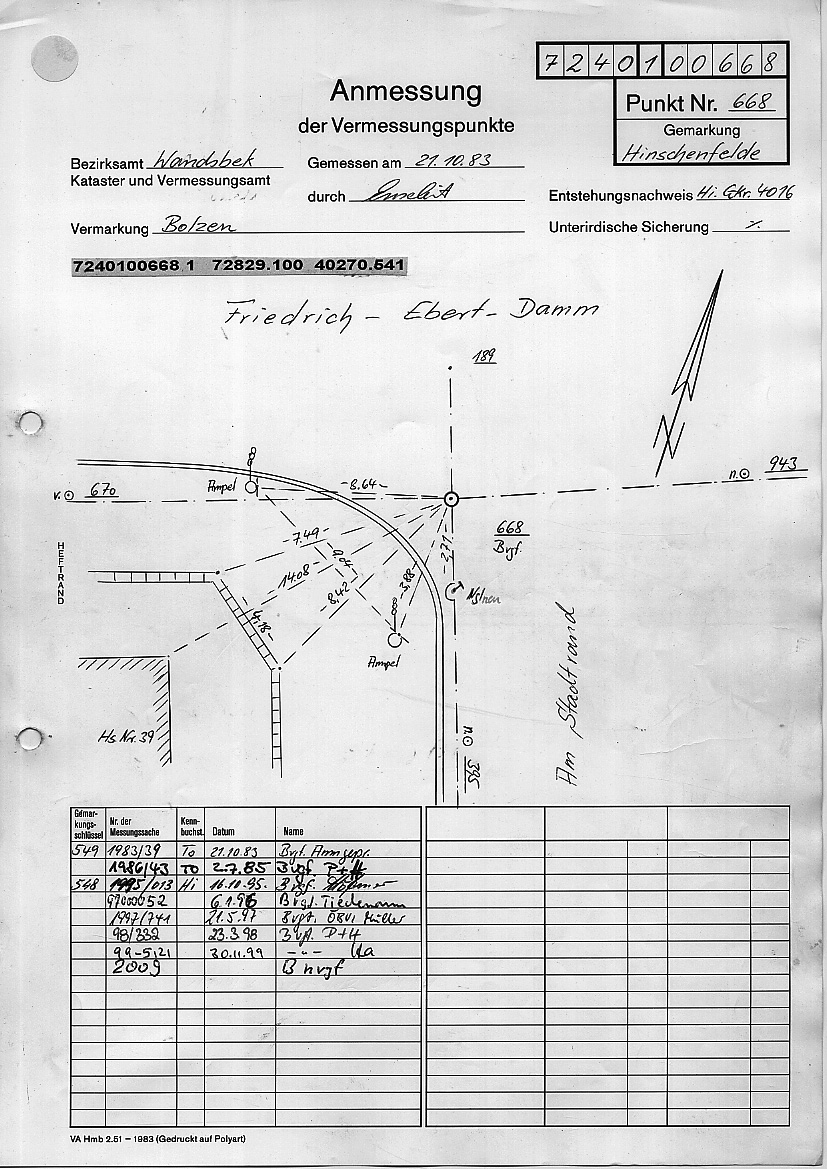 7240100668
Anmessung
der Vermessungspunkte
Punkt Nr. 668
Gemarkung
Hinschenfelde
Bezirksamt Wandsbek
Kataster und Vermessungsamt
Gemessen am 21.10.83
durch
Entstehungsnachweis Hi. Gkr. 4016
Vermarkung Bolzen
Unterirdische Sicherung ٪
7240100668 1 72829.100 40270.541
Friedrich - Ebert - Damm
189
v. 670
Ampel
-8.64-
n. 943
668
Bvgf.
-7.49-
9.04
-2,71-
14.08
-8,42
-3,88-
4.18-
HEFTRAND
Ampel
Hs Nr. 39
Am Stadtrand
n. 395
Gemar-
kungs-
schlüssel
Nr. der
Messungssache
Kenn-
buchst.
Datum
Name
549 1983/39 To 21.10.83 Bvgf. Anm gepr.
1986/43 TO 2.7.85 Bvgf. P+H
548 1995/013 Hi 16.10.95. Bvgf.
97000052 6.1.96 Bvgf. Tiedemann
1997/741 21.5.97 Bvgf. ÖBVI Müller
98/332 23.3.98 Bvgf. P+H
99-5121 30.11.99 -"-
2009 B nvgf
VA Hmb 2.51 – 1983 (Gedruckt auf Polyart)